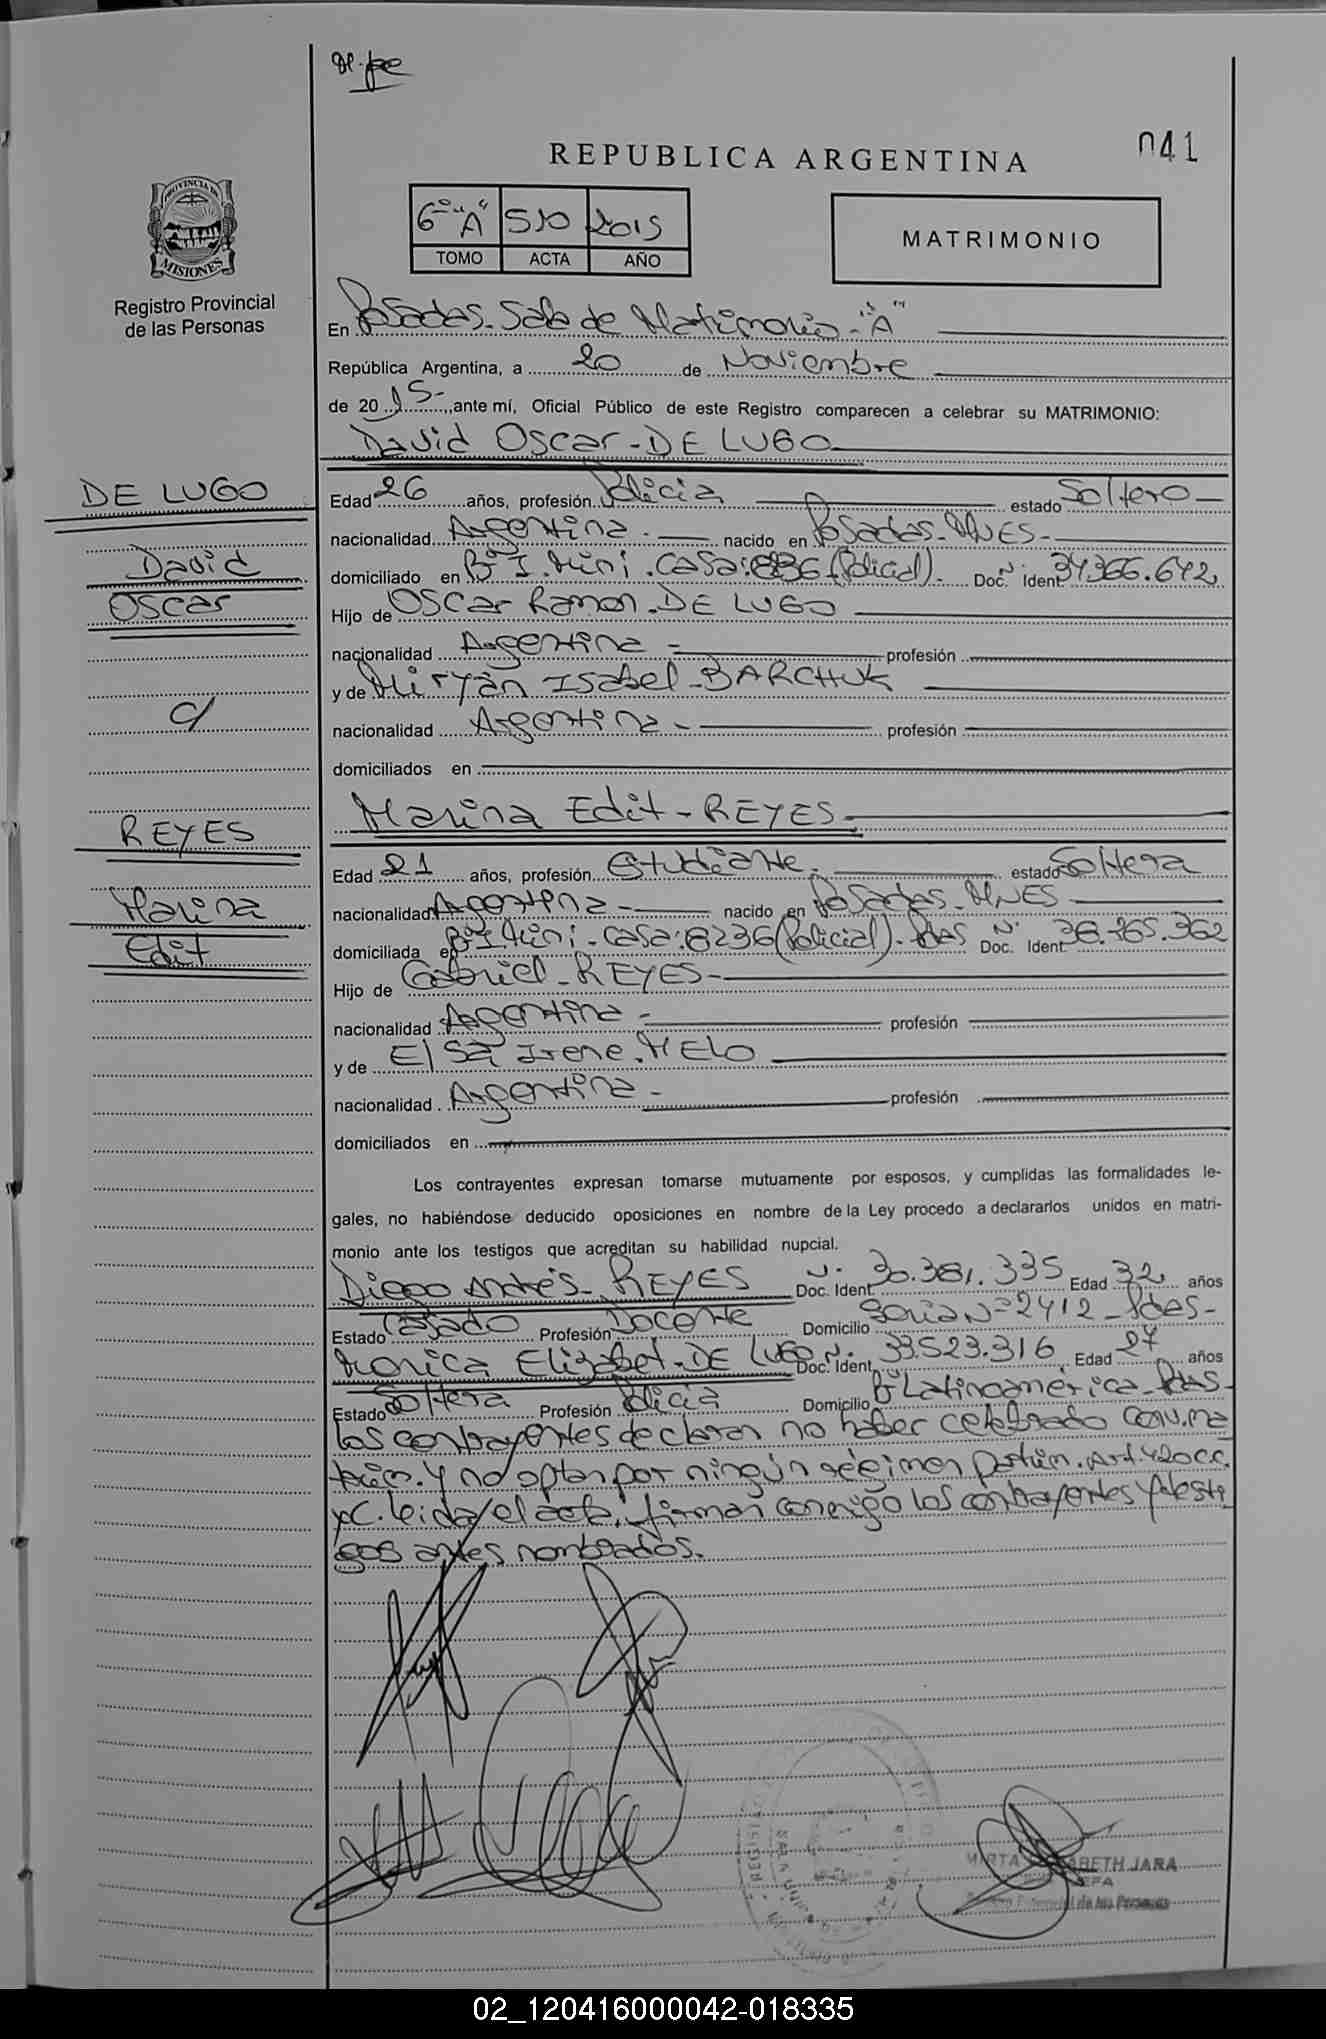 041
REPUBLICA ARGENTINA
PROVINCIA DE
MISIONES
Registro Provincial
de las Personas
6º "A" 510 2015
TOMO ACTA AÑO
MATRIMONIO
En Posadas - Sala de Matrimonio - "A"
República Argentina, a 20 de Noviembre
de 2015 - ,ante mí, Oficial Público de este Registro comparecen a celebrar su MATRIMONIO:
David Oscar - DE LUGO
DE LUGO
David
Oscar
c/
REYES
Marina
Edit
Edad 26 años, profesión Policia estado Soltero -
nacionalidad Argentina - nacido en Posadas - MNES -
domiciliado en Bº I. Mini . Casa: 8236 (Policial). Doc. Nº Ident 34366.642
Hijo de Oscar Ramon - DE LUGO
nacionalidad Argentina - profesión
y de Miryan Isabel - BARCHUK
nacionalidad Argentina - profesión
domiciliados en
Marina Edit - REYES -
Edad 21 años, profesión Estudiante - estado Soltera
nacionalidad Argentina - nacido en Posadas - MNES
domiciliada en Bº I. Mini . Casa: 8236 (Policial) - Pdas Doc. Nº Ident 38.765.362
Hijo de Gabriel - REYES -
nacionalidad Argentina - profesión
y de Elsa Irene . MELO
nacionalidad Argentina - profesión
domiciliados en
Los contrayentes expresan tomarse mutuamente por esposos, y cumplidas las formalidades le-
gales, no habiéndose deducido oposiciones en nombre de la Ley procedo a declararlos unidos en matri-
monio ante los testigos que acreditan su habilidad nupcial.
Diego Andrés - REYES Doc. Ident Nº 30.381.335 Edad 32 años
Estado Casado Profesión Docente Domicilio Soria Nº 2412 - Pdas -
Monica Elizabet - DE LUGO Doc. Ident Nº 33.523.316 Edad 27 años
Estado Soltera Profesión Policia Domicilio Bº Latinoamerica - Pdas -
Los contrayentes declaran no haber celebrado conv. ma
trim. y no optan por ningún régimen patrim. Art. 420 C.C.
y C. leida el acta, firman conmigo los contrayentes y testi
gos antes nombrados.
MIRTA JARA
JEFA
de las Personas
02_120416000042-018335